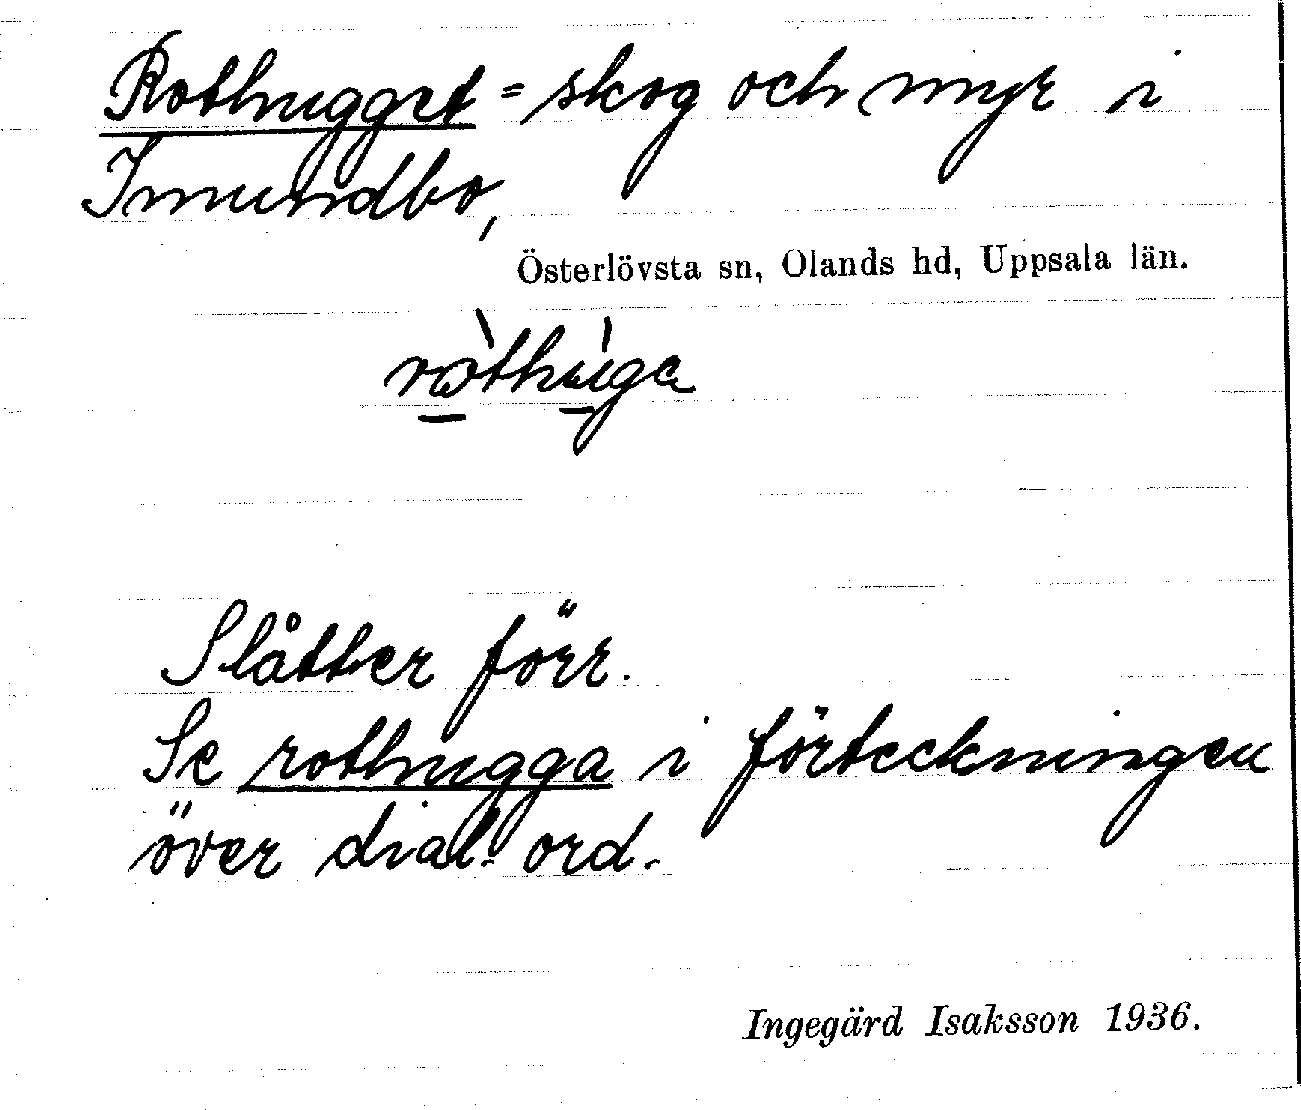 Rothugget = skog och myr i
Imundbo,
Österlövsta sn, Olands hd, Uppsala län.
ròthúga
Slåtter förr.
Se rothugga i förteckningen
över dial. ord.
Ingegärd Isaksson 1936.